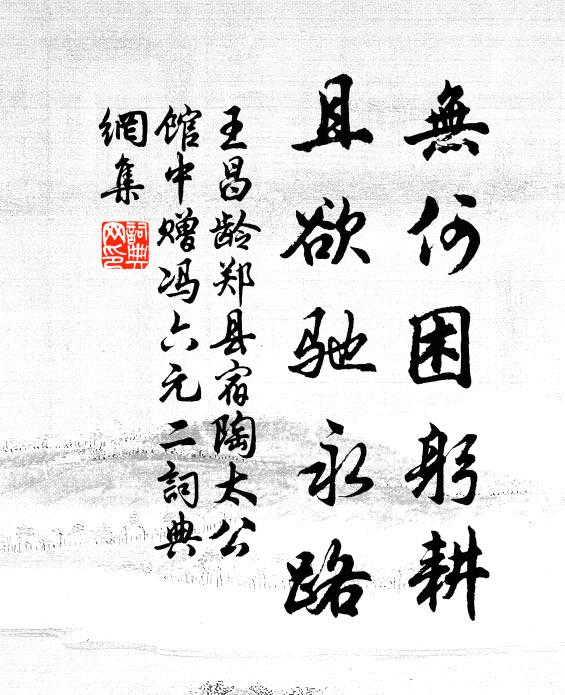 無何困躬耕
且欲驰永路
王昌龄郑县宿陶太公
馆中赠冯六元二詞典
網集
詞典
网印